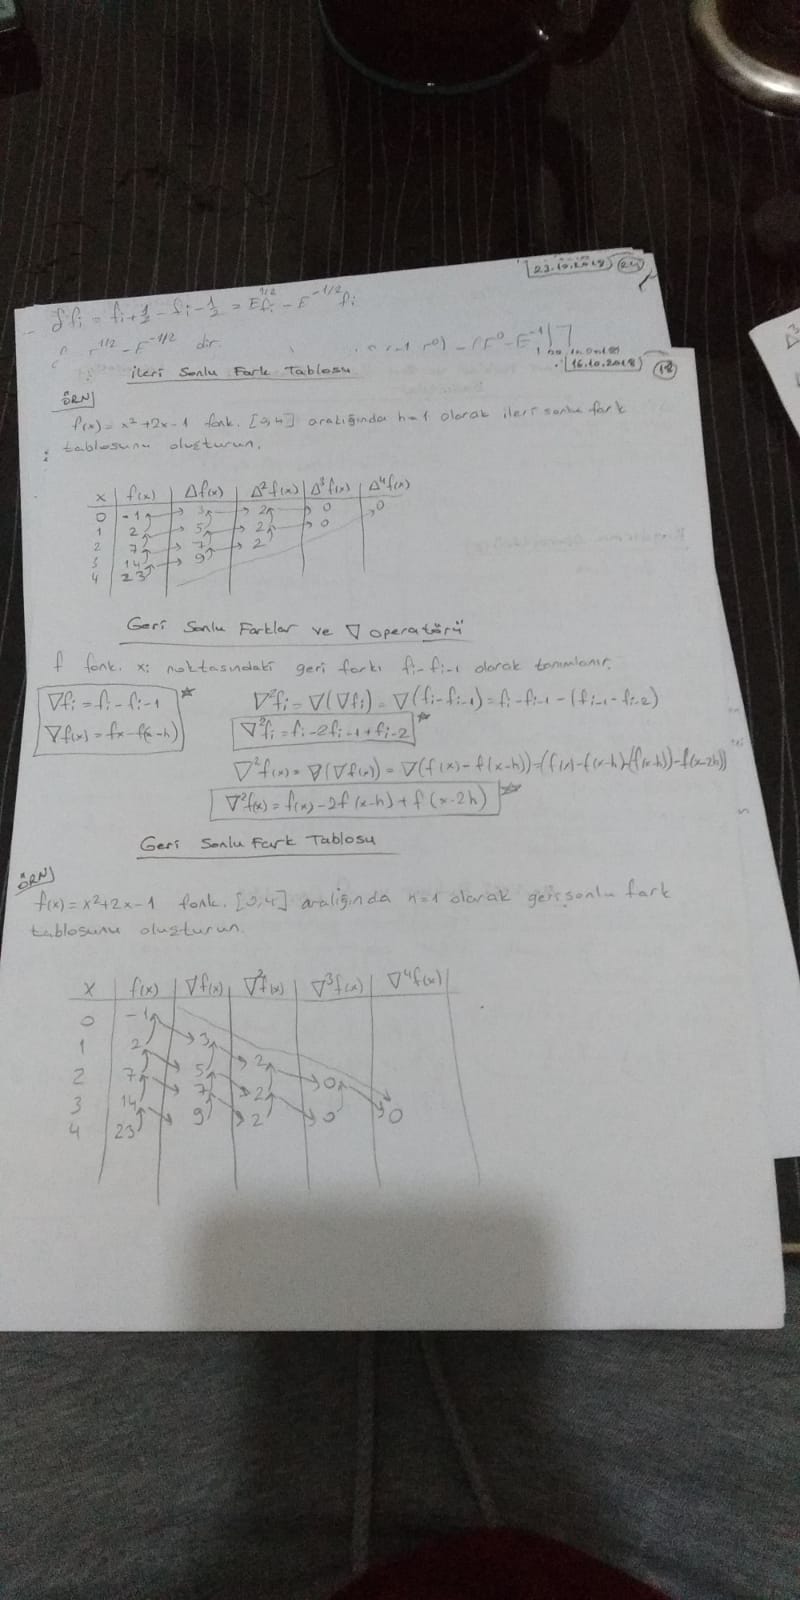 23.10.2018 24
δfi = fi+1/2 - fi-1/2 = E^1/2 fi - E^-1/2 fi
E^-1/2 dir.
16.10.2018 18
İleri Sonlu Fark Tablosu
ÖRN
f(x) = x²+2x-1 fonk. [0,4] aralığında h=1 olarak ileri sonlu fark
tablosunu oluşturun.
x f(x) Δf(x) Δ²f(x) Δ³f(x) Δ⁴f(x)
0 -1 3 2 0 0
1 2 5 2 0
2 7 7 2
3 14 9
4 23
Geri Sonlu Farklar ve ∇ operatörü
f fonk. xi noktasındaki geri farkı fi-fi-1 olarak tanımlanır.
∇fi = fi - fi-1
∇f(x) = fx - f(x-h)
∇²fi = ∇(∇fi) = ∇(fi-fi-1) = fi-fi-1 - (fi-1-fi-2)
∇²fi = fi-2fi-1+fi-2
∇²f(x) = ∇(∇f(x)) = ∇(f(x)-f(x-h)) = (f(x)-f(x-h)-(f(x-h))-f(x-2h))
∇²f(x) = f(x)-2f(x-h)+f(x-2h)
Geri Sonlu Fark Tablosu
ÖRN
f(x) = x²+2x-1 fonk. [0,4] aralığında h=1 olarak geri sonlu fark
tablosunu oluşturun.
x f(x) ∇f(x) ∇²f(x) ∇³f(x) ∇⁴f(x)
0 -1
1 2 3
2 7 5 2
3 14 7 2 0
4 23 9 2 0 0